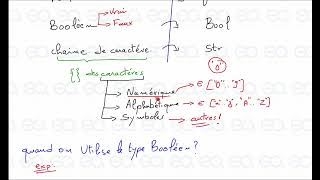 Vrai
Booléen → Faux → Bool
chaine de caractère → Str
"0"
{} des caractères
→ Numérique → ∈ ["0".."9"]
→ Alphabétique → ∈ ["a".."z", "A".."Z"]
→ Symboles → autres!
quand on utilise le type Booléen?
exp: